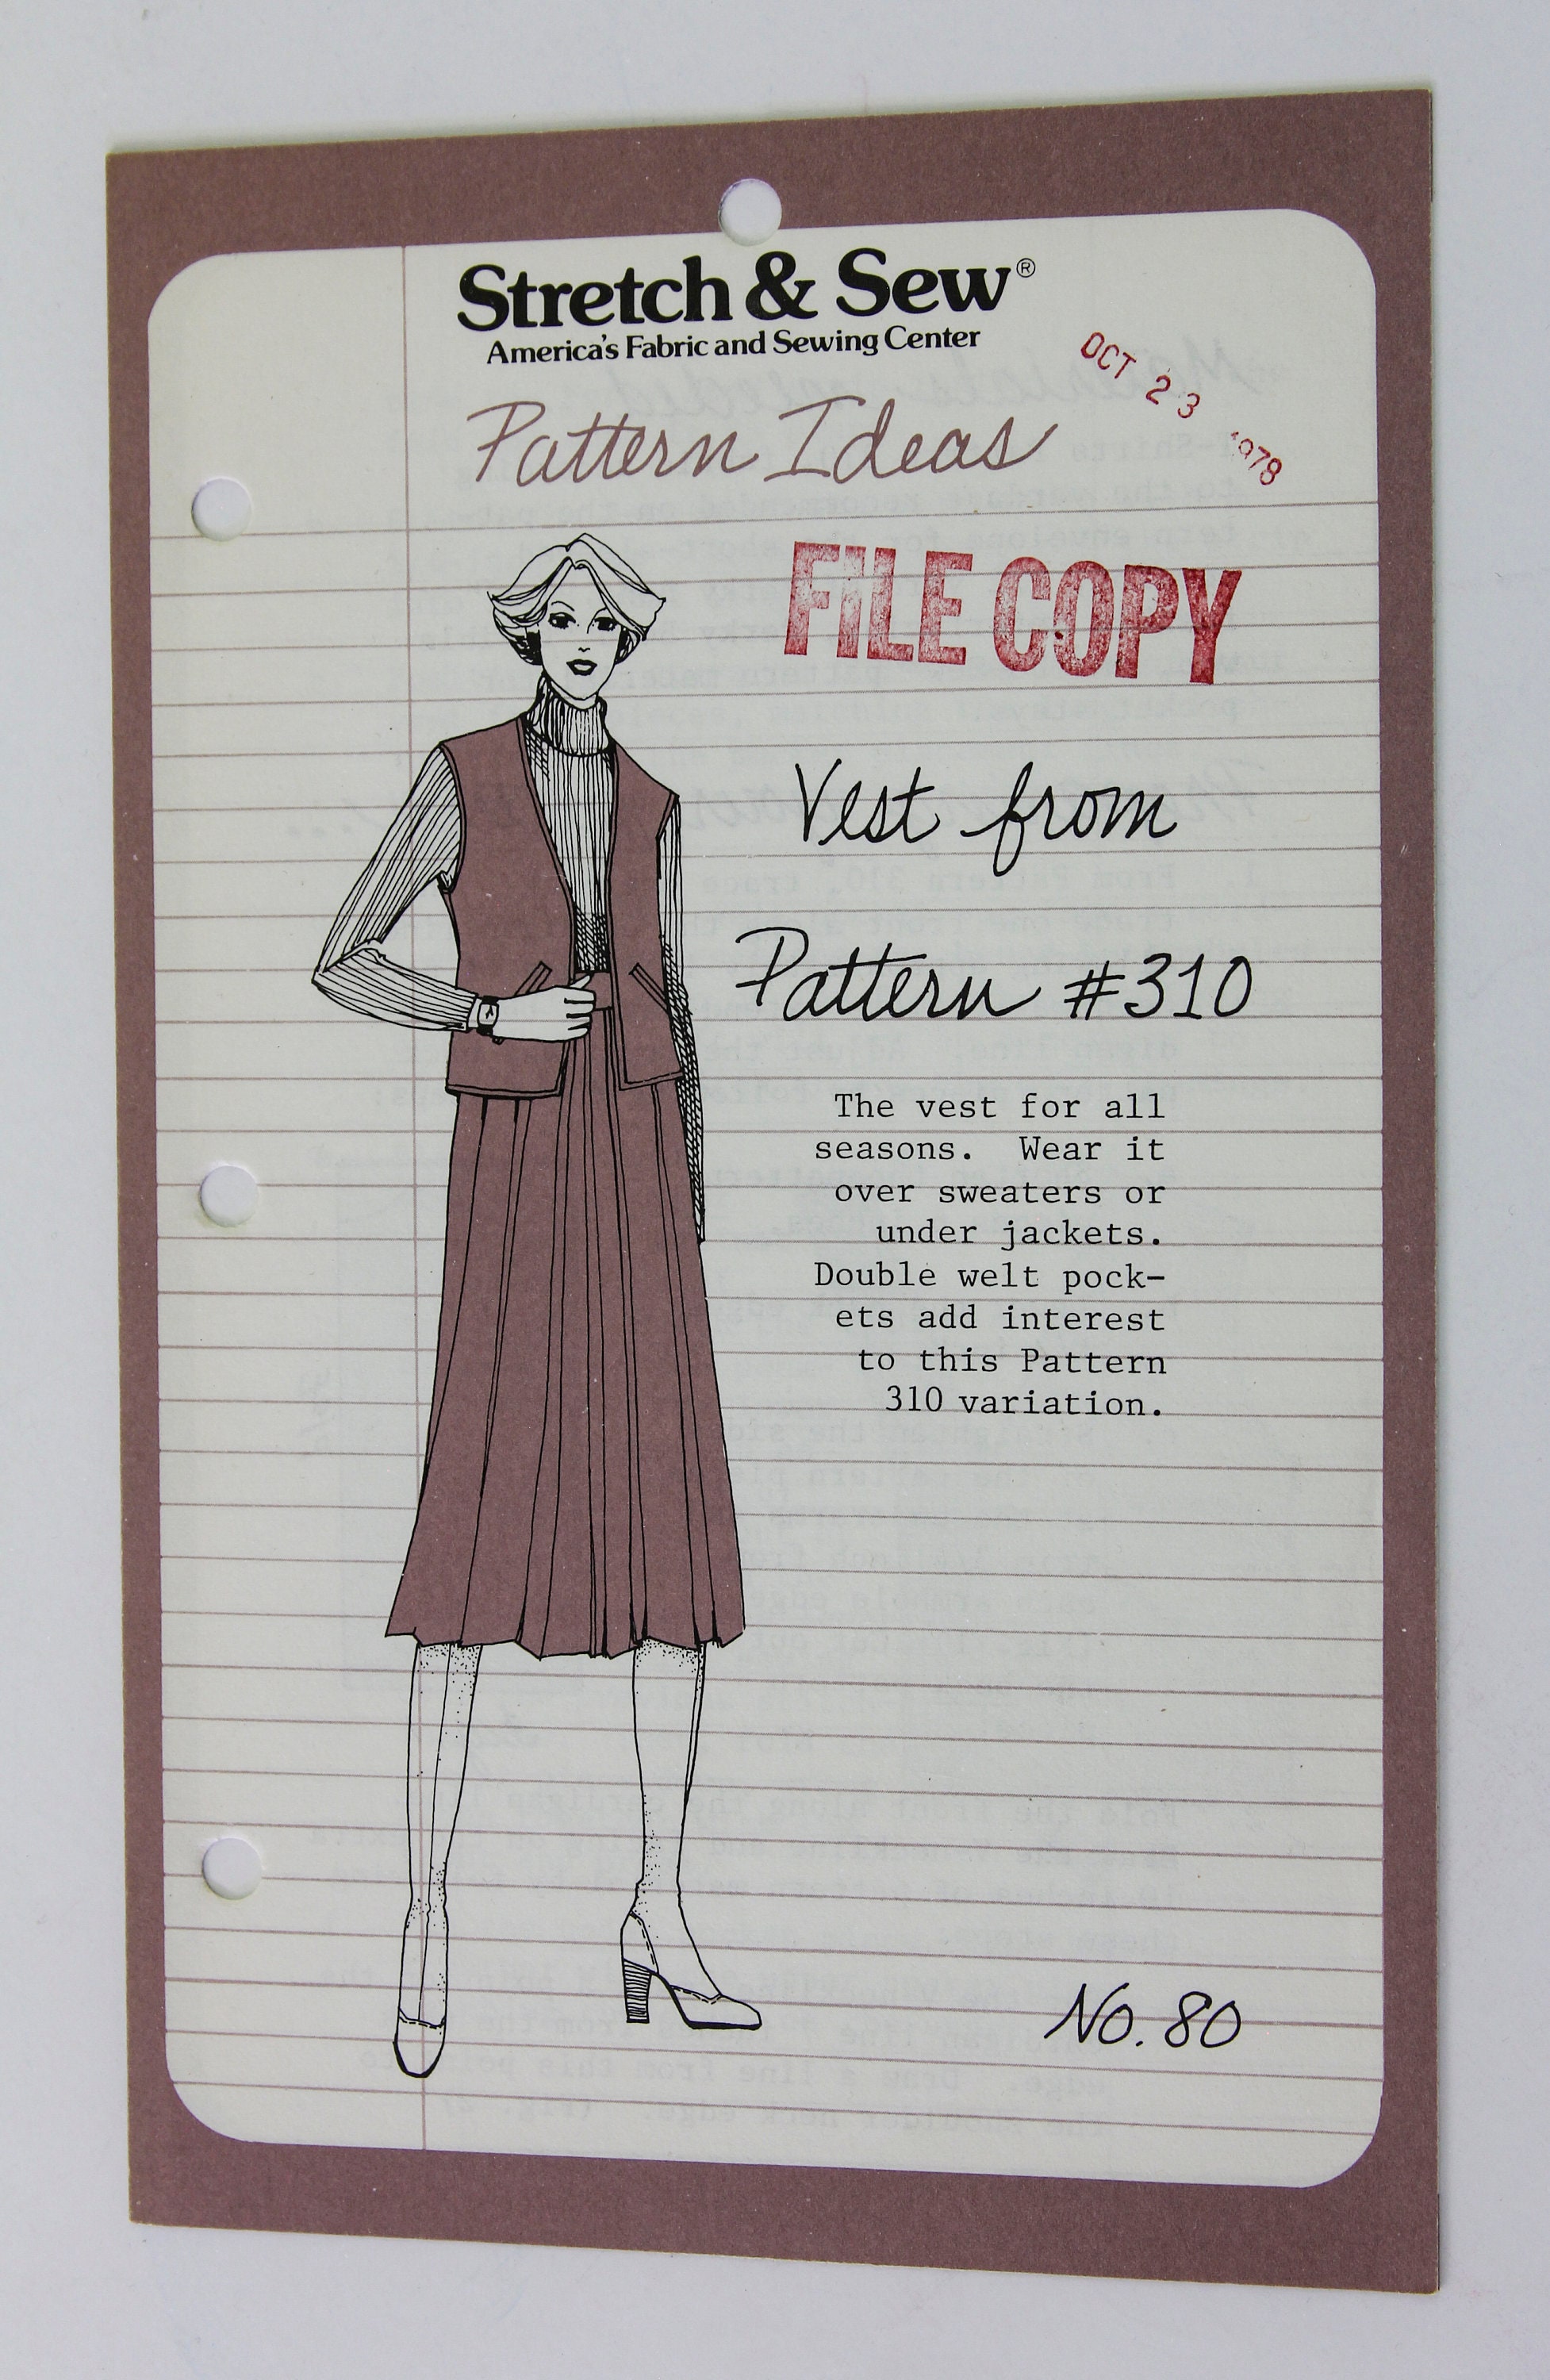 Stretch & Sew®
America's Fabric and Sewing Center
OCT 23 1978
Pattern Ideas
FILE COPY
Vest from
Pattern #310
The vest for all
seasons. Wear it
over sweaters or
under jackets.
Double welt pock-
ets add interest
to this Pattern
310 variation.
No. 80